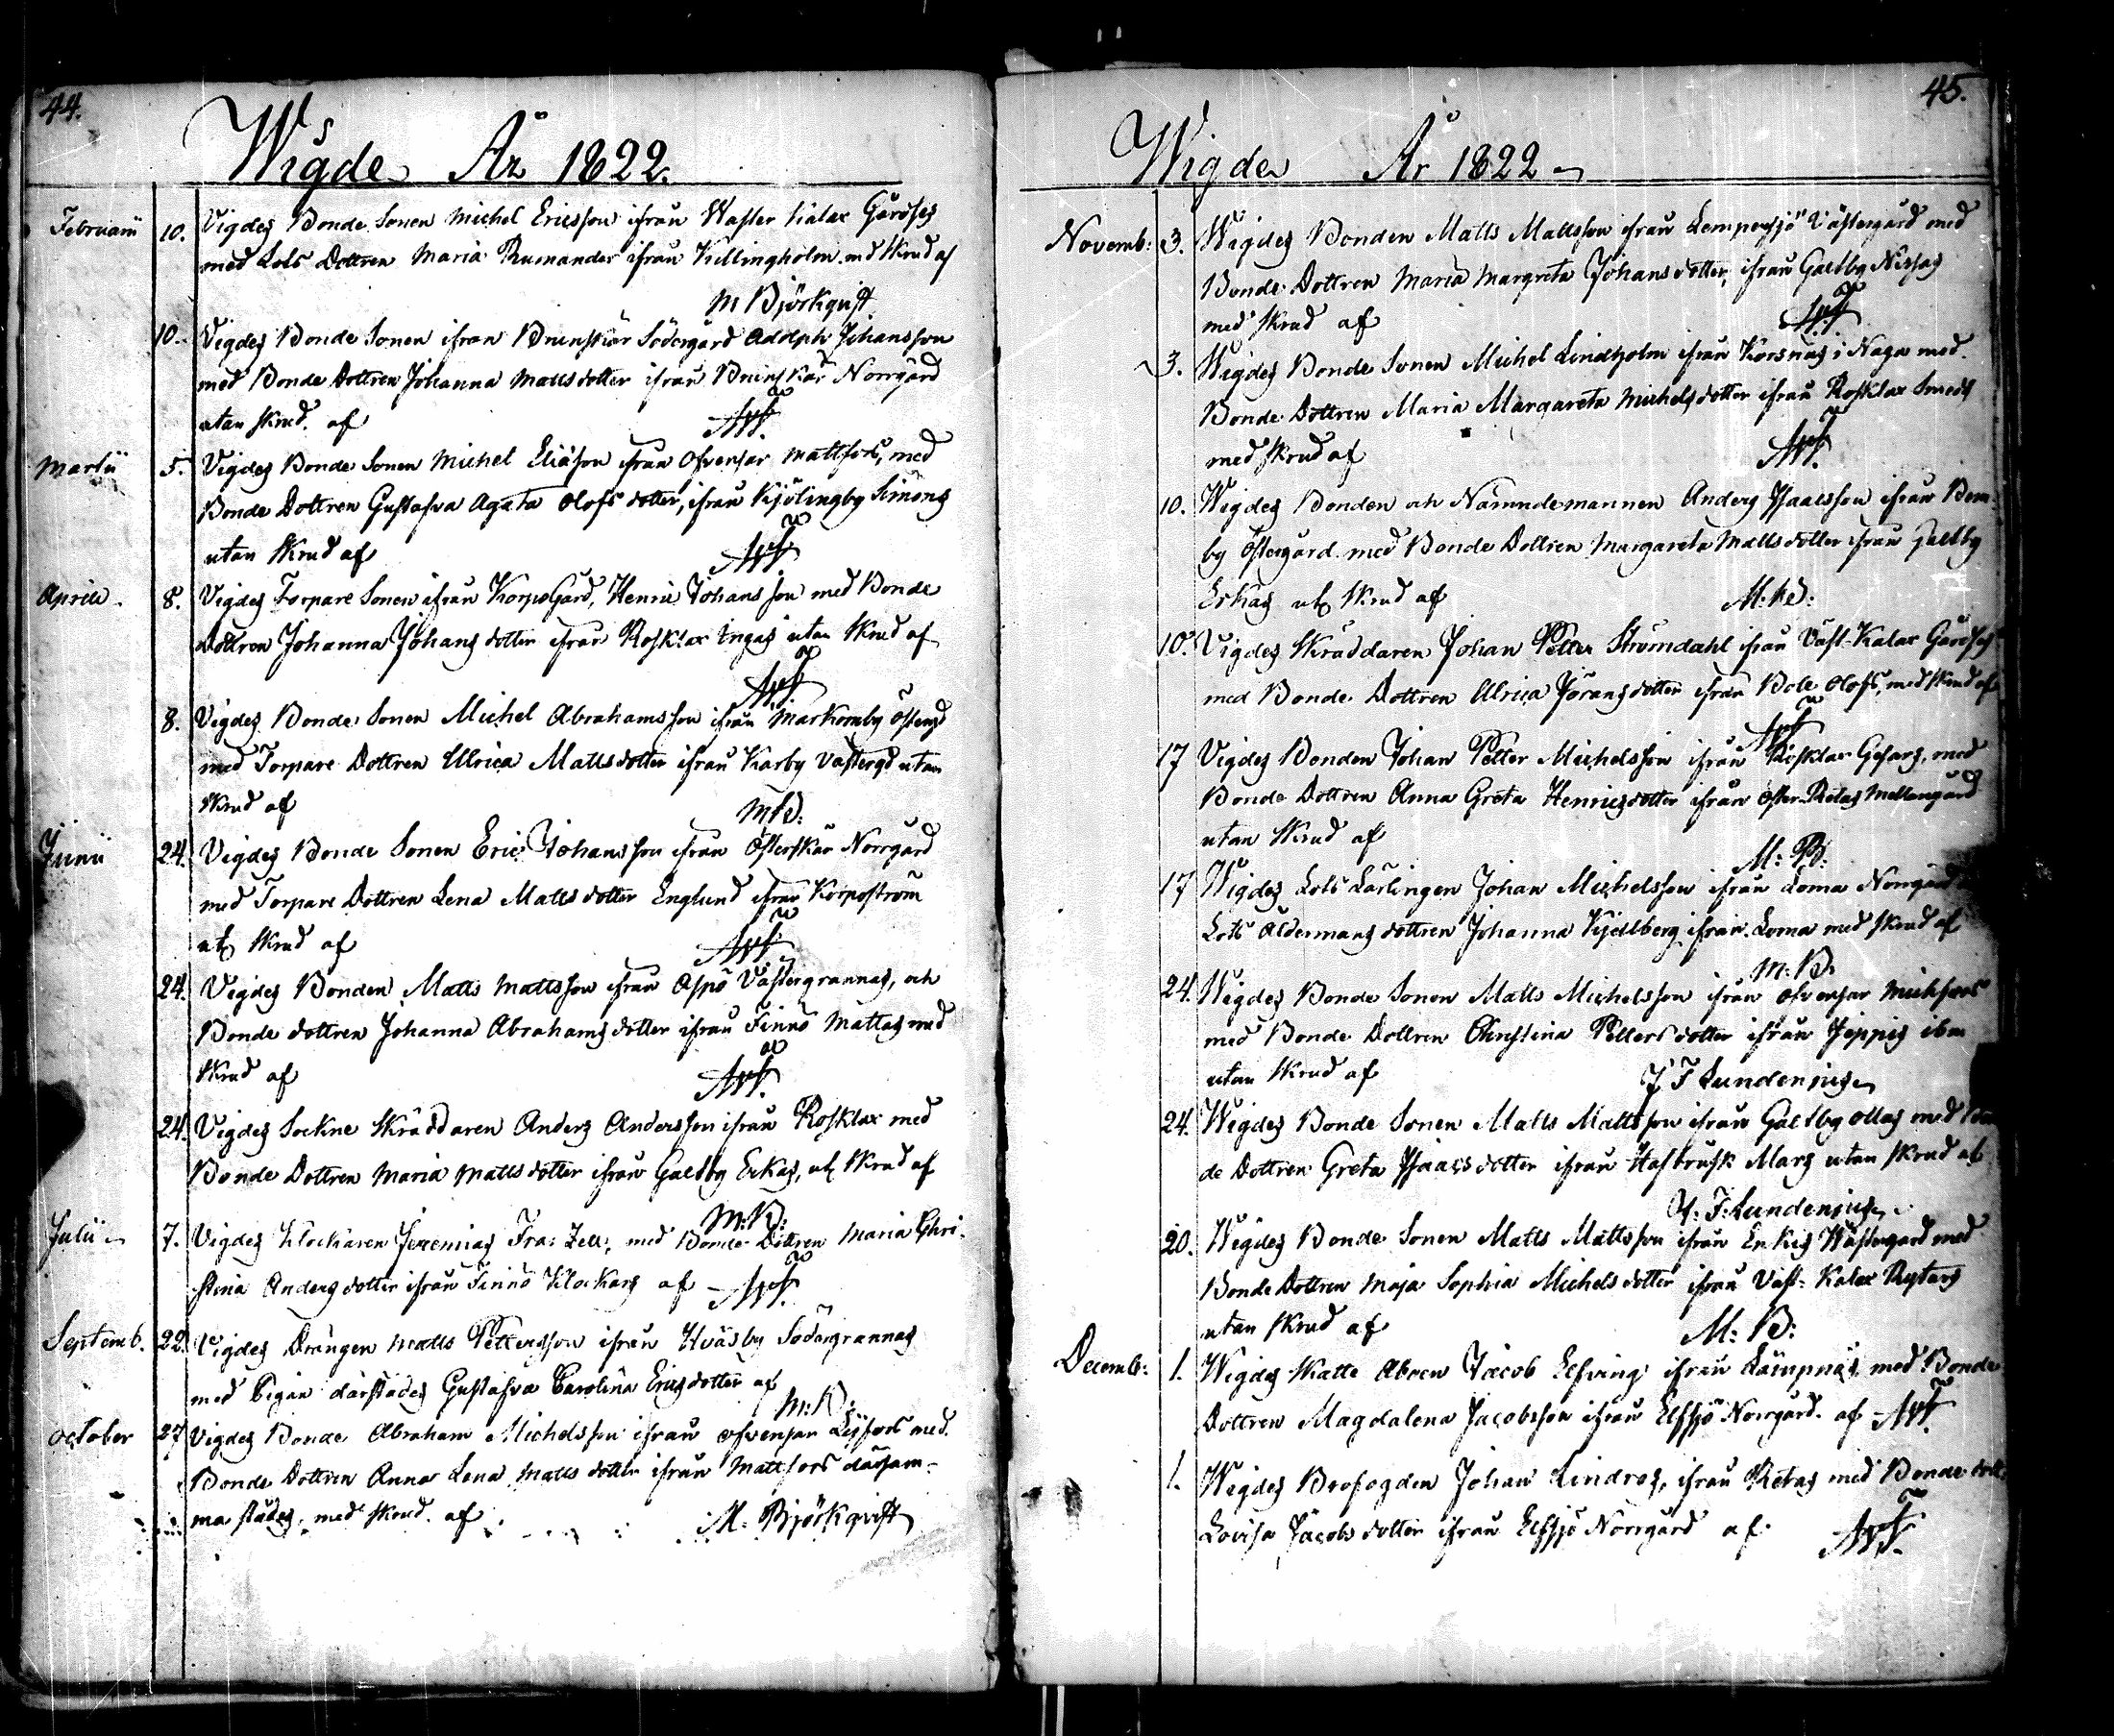 44.
Wigde År 1822.
Februarii 10. Vigdes Bonde Sonen Michel Ericsson ifrån Waster Kalax Gårdses
med Lots Dottren Maria Rumander ifrån Killingholm md Skrud af
M Björkqvist
10. Vigdes Bonde Sonen ifrån Brunskär Södergård Adolph Johansson
med Bonde Dottren Johanna Matts dotter ifrån Brunskär Norrgård
utan skrud. af
Martii 5. Vigdes Bonde Sonen Michel Eliasson ifrån Ofvensar Mattsfors, med
Bonde Dottren Gustafva Agata Olofs dotter, ifrån Kjölingby Simons
utan Skrud af
Aprill. 8. Vigdes Torpare Sonen ifrån KorpoGård, Henric Johansson med Bonde
Dottren Johanna Johans dotter ifrån Rosklax Ingas utan Skrud af
8. Vigdes Bonde Sonen Michel Abrahamsson ifrån Markomby Österg͞d
med Torpare Dottren Ulrica Matts dotter ifrån Karby Västergd utan
Skrud af MB:
Junii 24. Vigdes Bonde Sonen Eric Johansson ifrån Österskär Norrgård
med Torpare Dottren Lena Matts dotter Englund ifrån Korpoström
ut Skrud af
24. Vigdes Bonden Matts Mattsson ifrån Aspö Västergrannas, och
Bonde dottren Johanna Abrahams dotter ifrån Finnö Mattas med
Skrud af
24. Vigdes Sockne Skräddaren Anders Andersson ifrån Rosklax med
Bonde Dottren Maria Matts dotter ifrån Galtby Erkas, ut Skrud af
M:B:
Julii 7. Vigdes Klockaren Jeremias Fra: Zell:, med Bonde Dottren Maria Chri-
stina Anders dotter ifrån Finnö Klockars af
Septemb. 22. Vigdes Drängen Matts Pettersson ifrån Hväsby Södergrannas
med Pigan därstädes Gustafva Carolina Erics dotter af
M:B:
October 27 Vigdes Bonde Abraham Michelsson ifrån Ofvensar med
Bonde Dottren Anna Lena Matts dotter ifrån Mattsfors därsam-
ma städes, med skrud. af M: Björkqvist
45.
Wigde År 1822
Novemb: 3. Wigdes Bonden Matts Mattsson ifrån Lempersjö Västergård med
Bonde Dottren Maria Margreta Johans dotter, ifrån Galtby Nissas
med Skrud af
3. Wigdes Bonde Sonen Michel Lindholm ifrån Korsnäs i Nagu med
Bonde Dottren Maria Margareta Michels dotter ifrån Rosklax Smeds
med skrud af
10. Wigdes Bonden och Nämndemannen Anders Isaacsson ifrån Bem-
by Östergård med Bonde Dottren Margareta Matts dotter ifrån Galtby
Erkas ut Skrud af M:B:
10. Vigdes Skräddaren Johan Petter Strömdahl ifrån Väst-Kalax Gårdses
med Bonde Dottren Ulrica Jörans dotter ifrån Bole Olofs, med Skrud af
17 Vigdes Bonden Johan Petter Michelsson ifrån Rosklax med
Bonde Dottren Anna Greta Henrics dotter ifrån Öster-Retas Mellangård
utan Skrud af
M: B:
17 Wigdes Lots Lärlingen Johan Michelsson ifrån Loma Norrgård
Lots Åldermans dottren Johanna Kjellberg ifrån Loma med Skrud af
M: B:
24. Wigdes Bonde Sonen Matts Michelsson ifrån Ofvensar Michsfors
med Bonde Dottren Christina Petters dotter ifrån Jeppis ibm
utan Skrud af J F Lundenius
24. Wigdes Bonde Sonen Matts Mattsson ifrån Galtby Ollas med Bon-
de Dottren Greta Isaacs dotter ifrån Hafträsk Mars utan Skrud af
J. F: Lundenius
20. Wigdes Bonde Sonen Matts Mattsson ifrån Enkis Wästergård med
Bonde Dottren Maja Sophia Michels dotter ifrån Väst: Kalax Rytars
utan Skrud af M: B:
Decemb: 1. Wigdes Skatte Jacob Elfving ifrån Lämpnäs med Bonde
Dottren Magdalena Jacobsson ifrån Elfsjö Norrgård. af
1. Wigdes Brofogden Johan Lindros, ifrån Retas med Bonde dott:
Lovisa Jacobs dotter ifrån Elfsjö Norrgård af